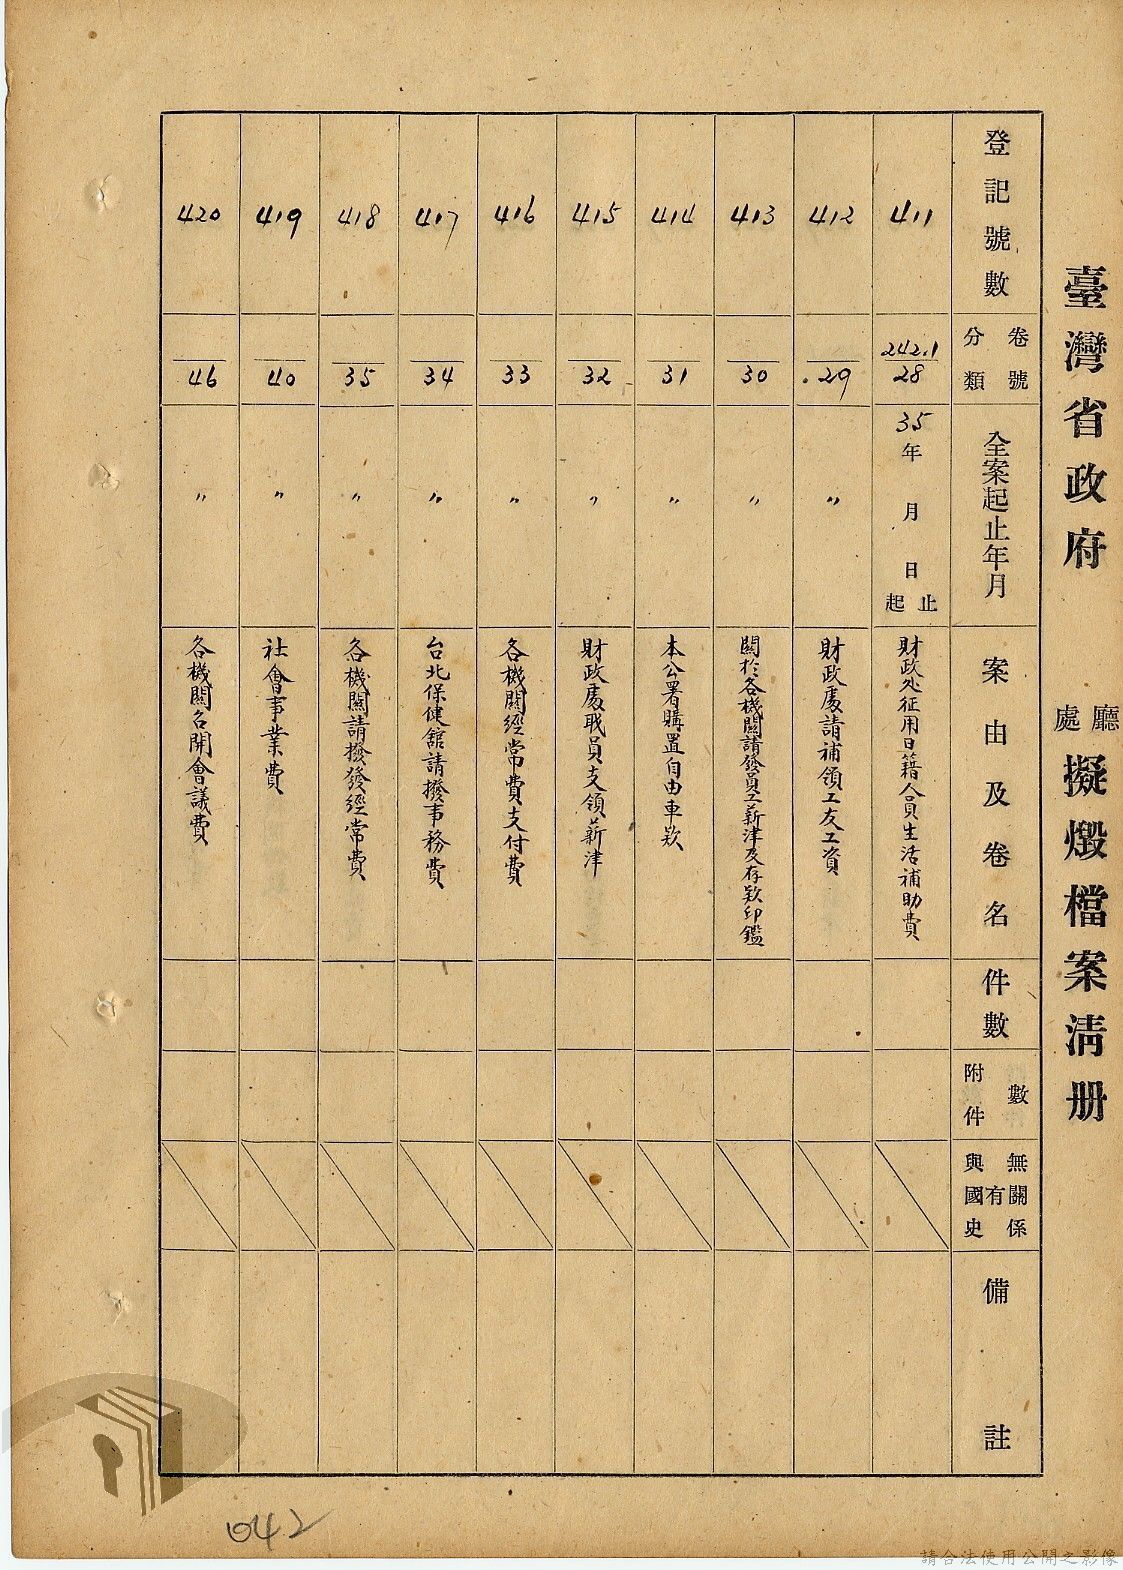 臺灣省政府 廳處 擬燬檔案清册
登記號數
卷號 分類
全案起止年月
案由及卷名
件數
附件數
與國史有無關係
備註
411
242.1
28
35年 月 日 起止
財政处征用日籍人員生活補助費
412
29
〃
財政處請補領工友工資
413
30
〃
關於各機關請發員工薪津及存欵印鑑
414
31
〃
本公署購置自由車欵
415
32
〃
財政處職員支領薪津
416
33
〃
各機關經常費支付費
417
34
〃
台北保健舘請撥事務費
418
35
〃
各機關請撥發經常費
419
40
〃
社會事業費
420
46
〃
各機關召開會議費
042
請合法使用公開之影像